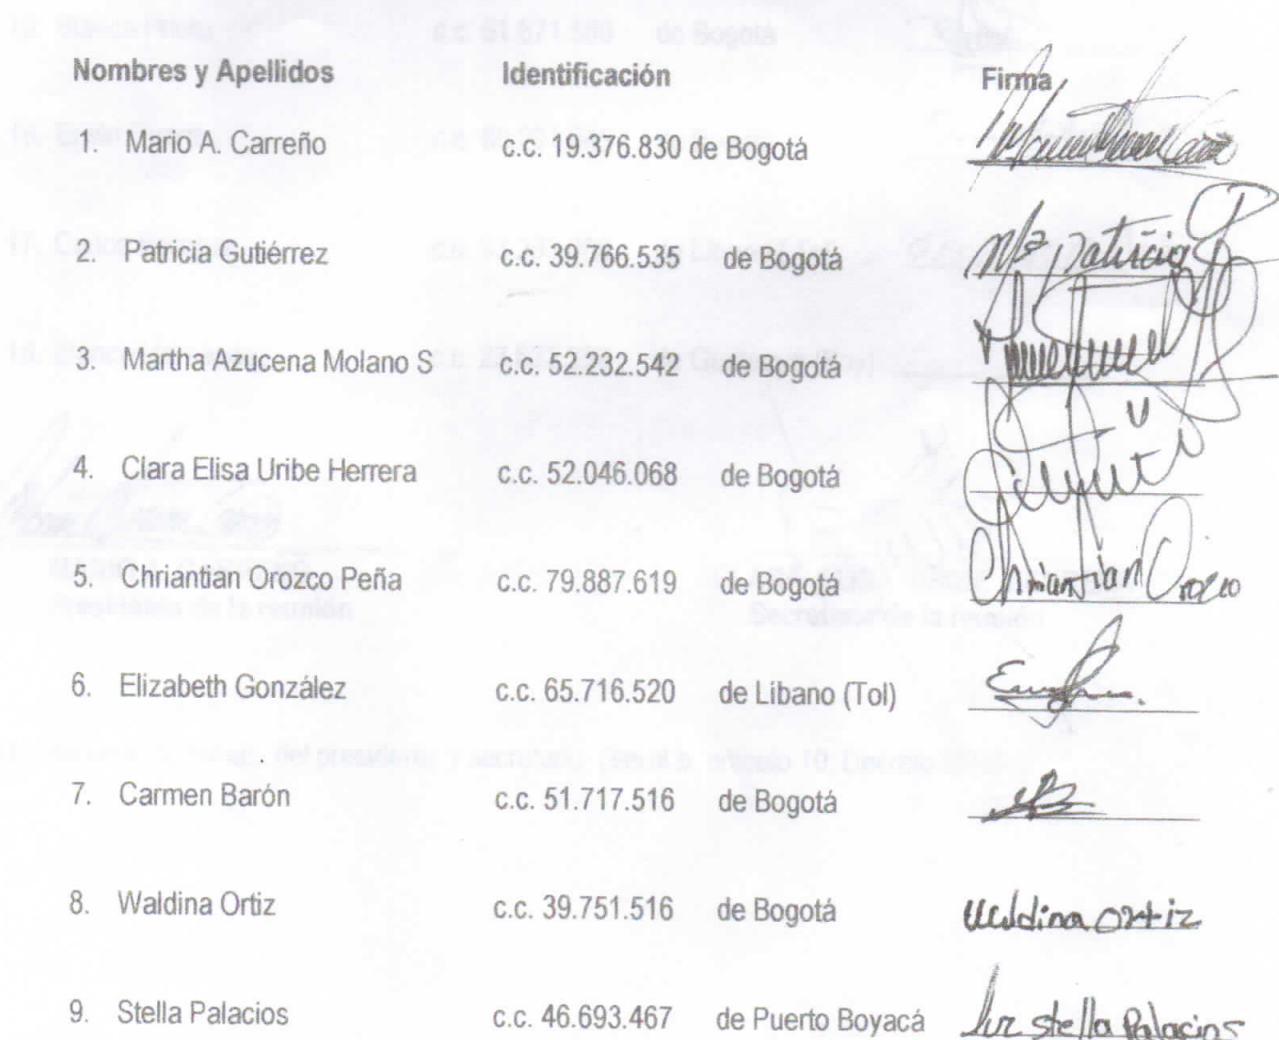 Nombres y Apellidos Identificación Firma
1. Mario A. Carreño c.c. 19.376.830 de Bogotá
2. Patricia Gutiérrez c.c. 39.766.535 de Bogotá Patricia
3. Martha Azucena Molano S c.c. 52.232.542 de Bogotá
4. Clara Elisa Uribe Herrera c.c. 52.046.068 de Bogotá
5. Chriantian Orozco Peña c.c. 79.887.619 de Bogotá Chriantian Orozco
6. Elizabeth González c.c. 65.716.520 de Libano (Tol)
7. Carmen Barón c.c. 51.717.516 de Bogotá
8. Waldina Ortiz c.c. 39.751.516 de Bogotá Waldina Ortiz
9. Stella Palacios c.c. 46.693.467 de Puerto Boyacá Luz stella Palacios